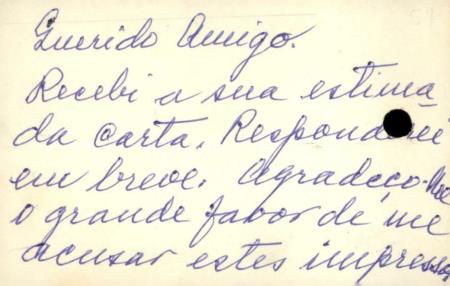 Querido Amigo.
Recebi a sua estima_
da carta. Responderei
em breve. Agradeço-lhe
o grande favor de me
acusar estes impressos